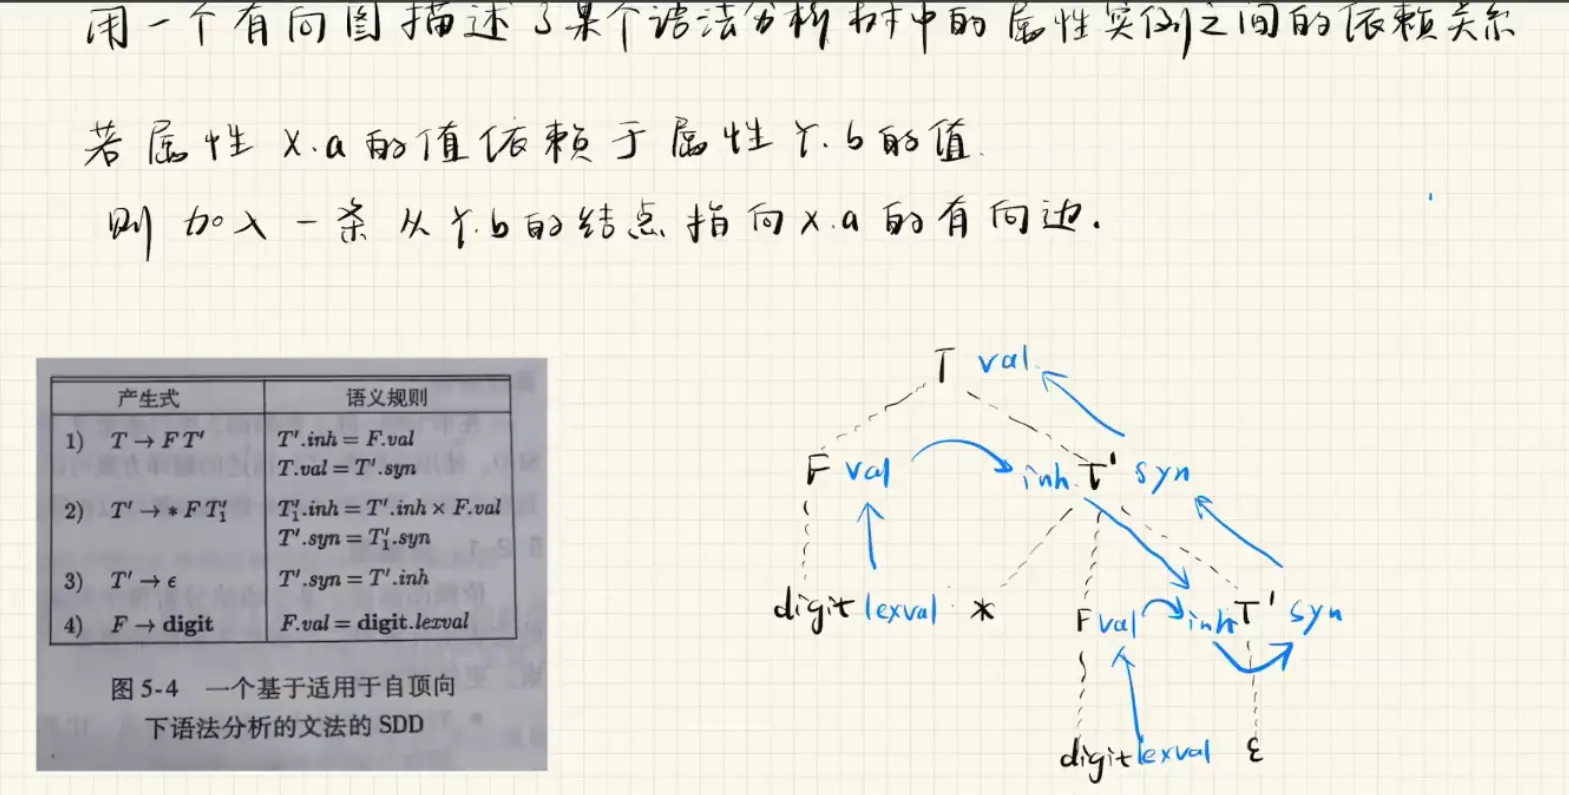 用一个有向图描述了某个语法分析树中的属性实例之间的依赖关系
若属性 X.a 的值依赖于属性 Y.b 的值.
则加入一条从 Y.b 的结点指向 X.a 的有向边.
产生式 语义规则
1) T → F T' T'.inh = F.val
T.val = T'.syn
2) T' → * F T'₁ T'₁.inh = T'.inh × F.val
T'.syn = T'₁.syn
3) T' → ϵ T'.syn = T'.inh
4) F → digit F.val = digit.lexval
图 5-4 一个基于适用于自顶向
下语法分析的文法的 SDD
T val.
F val inh T' syn
digit lexval *
F val inh T' syn
digit lexval ε